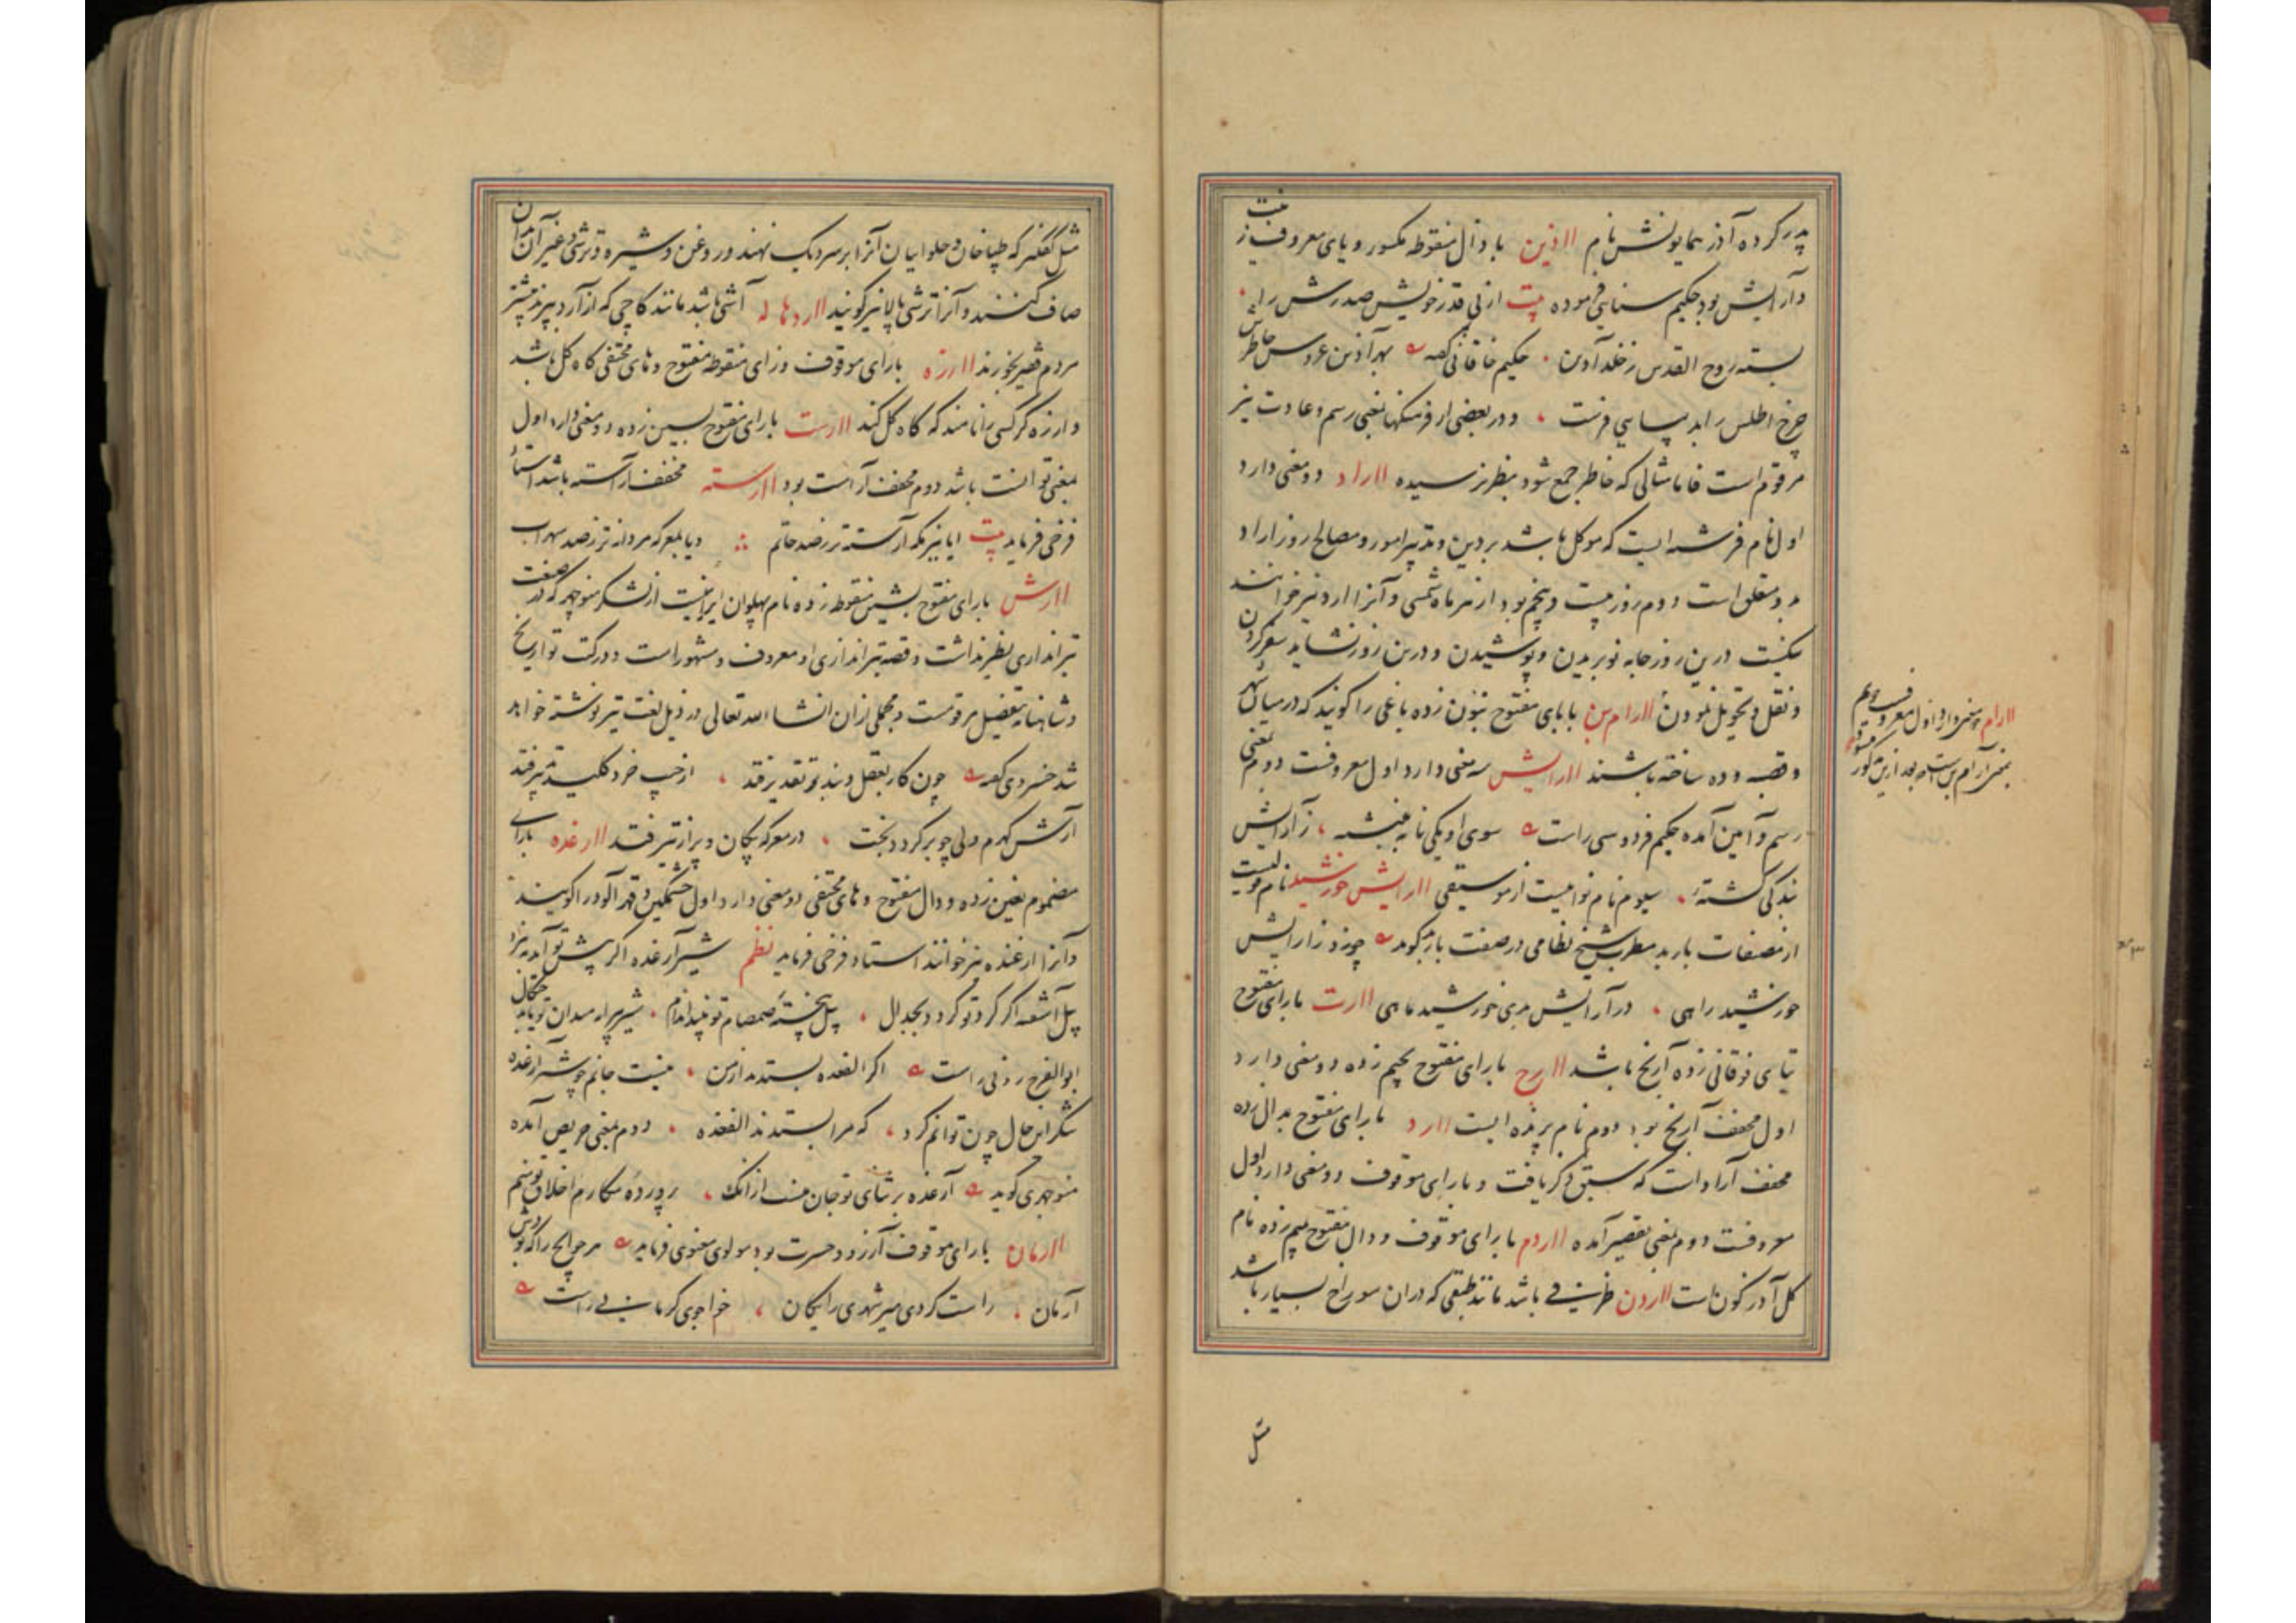 پدر کرده آذر همایونش نام ااذین با ذال منقوطه مکسور و یای معروف زینت
و آرایش بود حکیم سنایی فرموده بیت از پی قدر خویش صدرش را
بسته روح القدس ز خلد آذین حکیم خاقانی گفته بهر آذین عروس خاطرش
چرخ اطلس را به دیبایی فرست و در بعضی از فرهنگها بمعنی رسم و عادت نیز
مرقوم است فاما مثالی که خاطر جمع شود بنظر نرسیده ااراد دو معنی دارد
اول نام فرشته ایست که موکل باشد بر دین و تدبیر امور و مصالح روز اراد
بدو متعلق است دوم روز بیست و پنجم بود از هر ماه شمسی و آنرا ارد نیز خوانند
نیکست درین روز جامه نو بریدن و پوشیدن و درین روز نشاید سفر کردن
و نقل و تحویل نمودن اارام بن با بای مفتوح بنون زده باغی را گویند که در میان شهر
و قصبه و ده ساخته باشند اارایش سه معنی دارد اول معروفست دوم بمعنی
رسم و آیین آمده حکیم فردوسی راست سوی او یکی نامه بنبشته ز آرایش
بندگی گشته سیوم نام نوائیست از موسیقی اارایش خورشید نام نوائیست
از مصنفات باربد مطرب شیخ نظامی در صفت باربد گوید چو زد ز آرایش
خورشید راهی در آرایش بدی خورشید ماهی اارت با رای مفتوح
بتای فوقانی زده آرنج باشد اارج با رای مفتوح بجیم زده دو معنی دارد
اول مخفف آرنج بود دوم نام پرنده ایست اارد با رای مفتوح بدال زده
مخفف آراد است که سبق ذکر یافت و با رای موقوف دو معنی دارد اول
معروفست دوم بمعنی تقصیر آمده ااردم با رای موقوف و دال مفتوح بمیم زده نام
گل آذرگون است ااردن ظرفی باشد مانند طبقی که در آن سوراخ بسیار باشد
مثل
اارام دو معنی دارد اول معروف دویم
بمعنی آرام بن است که بعد ازین مذکور
مثل کفگیر که طباخان و حلواییان آنرا بر سر دیگ نهند و روغن و شیره و ترشی و غیر آن بدان
صاف کنند و آنرا ترشی پالا نیز گویند ااردهاله آشی باشد مانند کاچی که از آرد پزند بیشتر
مردم فقیر خورند اارزه با رای موقوف و زای منقوطه مفتوح و های مختفی کاه گل باشد
و ارزه گر کسی را نامند که کاه گل کند اارست با رای مفتوح بسین زده دو معنی دارد اول
بمعنی توانست باشد دوم مخفف آراست بود اارسته مخفف آراسته باشد استاد
فرخی فرماید بیت ایا ببزمگه آرسته تر ز صد حاتم و یا بمعرکه مردانه تر ز صد سهراب
اارش با رای مفتوح بشین منقوطه زده نام پهلوان ایرانیست از لشکر منوچهر که در صنعت
تیراندازی نظیر نداشت و قصه تیراندازی او معروف و مشهور است و در کتب تواریخ
و شاهنامه بتفصیل مرقومست و مجملی از آن انشاء الله تعالی در ذیل لغت تیر نوشته خواهد
شد خسروی گفته چون کار بعقل و بند و تقدیر فتد از جیب خرد کلید تدبیر فتد
آرش گهرم ولی چو برگردد بخت در معرکه پیکان و پر از تیر فتد اارغده با رای
مضموم بغین زده و دال مفتوح و های مختفی دو معنی دارد اول خشمگین و قهرآلود را گویند
و آنرا ارغنده نیز خوانند استاد فرخی فرماید نظم شیر آرغده اگر پیش تو آید بنبرد
پیل آشفته اگر گرد تو گردد بجدال پیل پخته صمصام تو بیند اندام شیر پیرامن میدان تو یابد چنگال
ابوالفرج رونی راست اگر الفغده بستد از من نیست جانم چو شیر آرغده
شکر این حال چون توانم کرد که مرا بستدند الفغده دوم بمعنی حریص آمده
منوچهری گوید آرغده بر ثنای تو جان منست ازانک پرورده مکارم اخلاق تو منم
اارمان با رای موقوف آرزو و حسرت بود مولوی معنوی فرماید مر حوایج را که بودش
آرمان راست کردی میر شهری رایگان خواجوی کرمانی راست